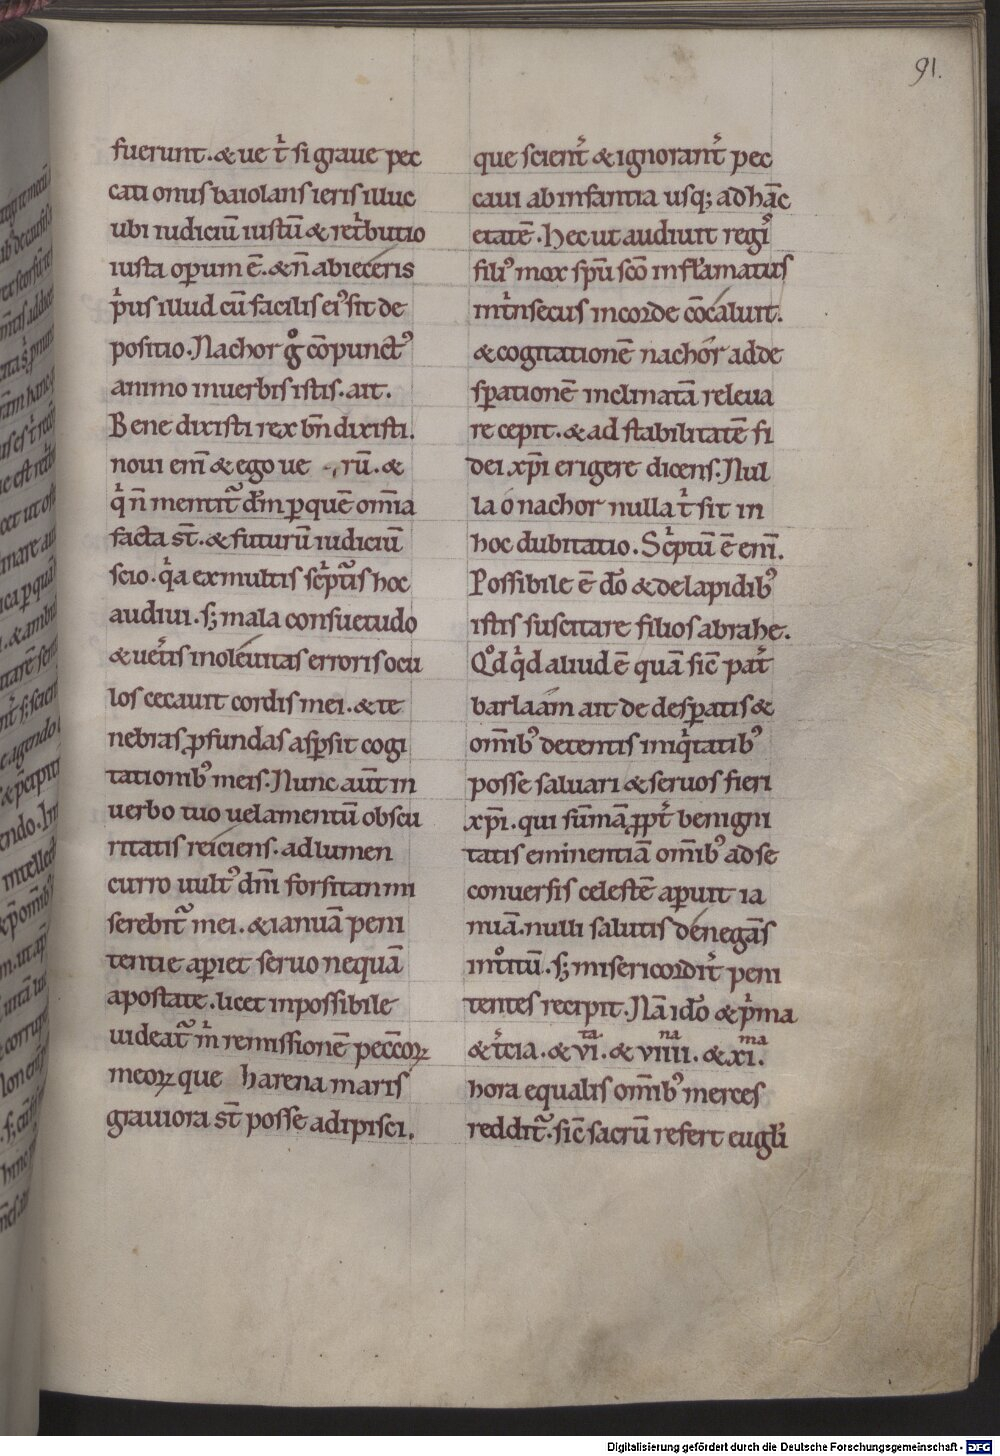 91.
fuerunt. & ue t̾ si graue pec
cati onus baiolans ieris illuc
ubi iudiciū iustū & ret̾butio
iusta operum ē. & n̄ abieceris
p̾us illud cū facilis ei᾽ sit de
positio. Nachor g̊ cōpunct᾽
animo in uerbis istis. ait.
Bene dixisti rex bn̄ dixisti.
noui eni̅ & ego ue rū. &
q̾ n̄ mentit᷑ dm̅ ꝑ quē om̅ia
facta st̄. & futurū iudiciū
scio. q̾a ex multis sc̾pt᷑is hoc
audiui. s; mala consuetudo
& uet̾is inoleuitas erroris ocu
los cecauit cordis mei. & te
nebras ꝓfundas aspersit cogi
tationib᾽ meis. Nunc aut̅ in
uerbo tuo uelamentū obscu
ritatis reiciens. ad lumen
curro uult᾽ dn̅i forsitan mi
serebit᷑ mei. & ianuā peni
tentie aperiet seruo nequā
apostate. licet inpossibile
uideat᷑ m̾ remissionē pecc̅oꝝ
meoꝝ que harena maris
grauiora st̄ posse adipisci.
que scient̾ & ignorant̾ pec
caui ab infantia usq; ad hāc
etatē. Hec ut audiuit regi᾽
fili᾽ mox sp̅u sc̅o inflamatus
int̾nsecus in corde cōcaluit.
& cogitationē nachor ad de
sperationē inclinatā releua
re cepit. & ad stabilitatē fi
dei xp̅i erigere dicens. Nul
la o nachor nulla t̾ sit in
hoc dubitatio. Sc̾ptū ē eni̅.
Possibile ē do̅ & de lapidib᾽
istis suscitare filios abrahe.
Qd̊ q̾d aliud ē quā sic̅ pat̾
barlaam ait de desperatis &
om̅ib᾽ detentis iniq̾tatib᾽
posse saluari & seruos fieri
xp̅i. qui sūmā ꝓpt̾ benigni
tatis eminentiā om̅ib᾽ ad se
conuersis celestē aperuit ia
nuā. nulli salutis denegās
int̊itū. s; misericordit̾ peni
tentes recipit. Nā ido̅ & p̾ma
& t̾cia. & vi.ta & viiii.na & xi.ma
hora equalis om̅ib᾽ merces
reddit᷑. sic̅ sacrū refert eugl̅i
Digitalisierung gefördert durch die Deutsche Forschungsgemeinschaft - DFG